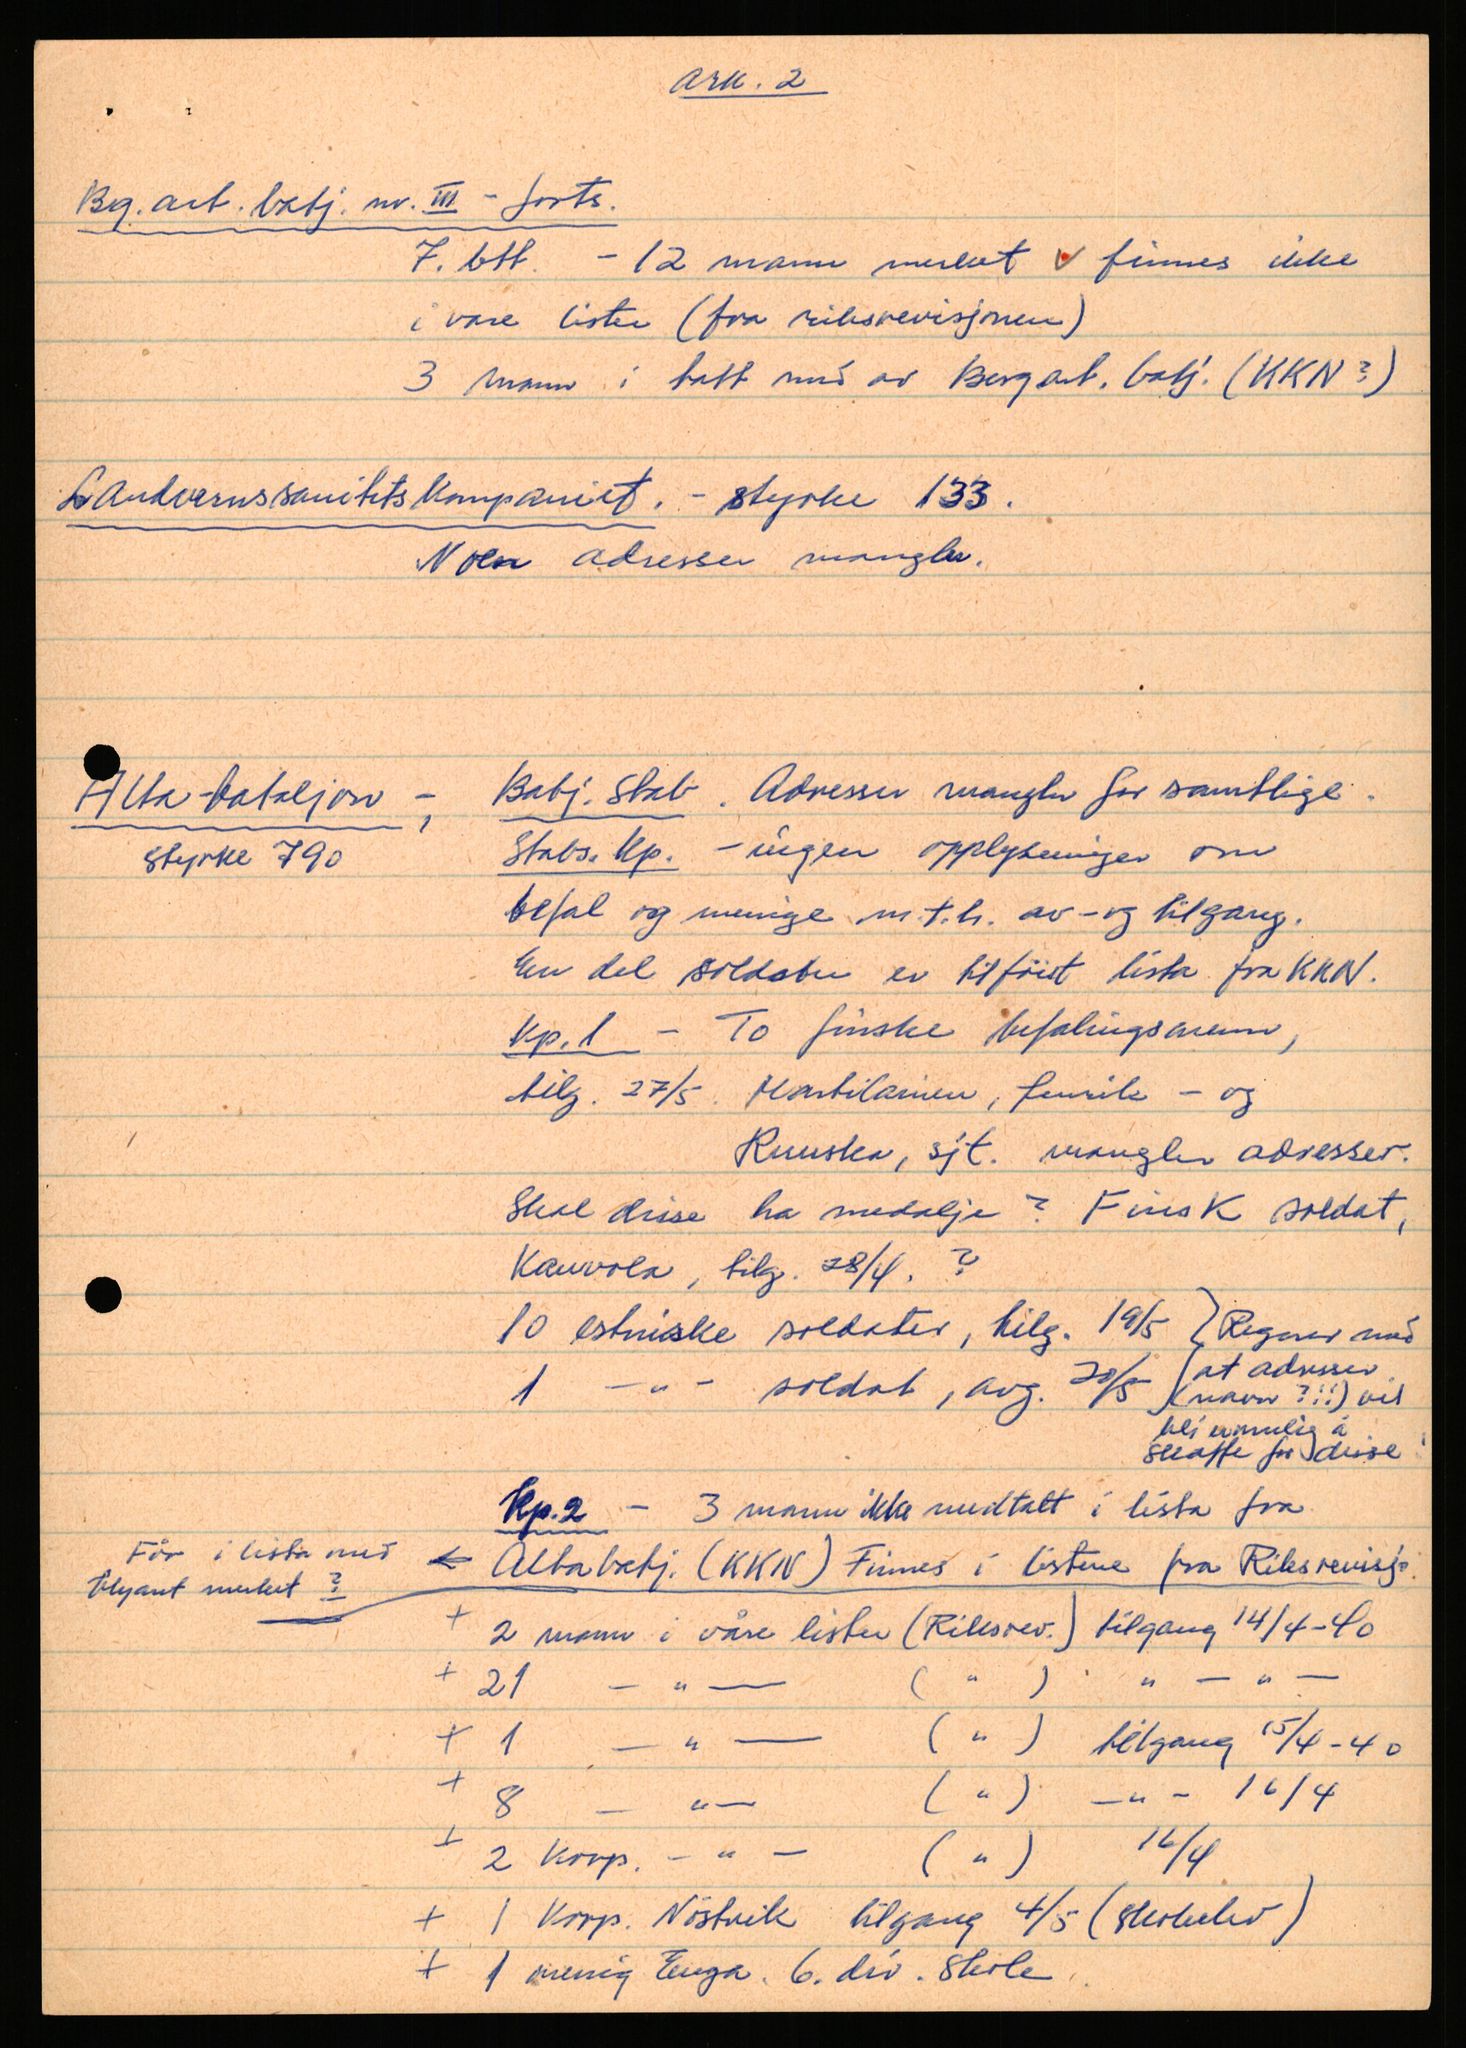 Ark. 2
Bg. art. batj. nr. III - forts.
7. btt. - 12 mann merket v finnes ikke
i våre lister (fra riksrevisjonen)
3 mann i batt nr 3 av Berg art. batj. (KKN?)
Landvernssanitetskompaniet. - styrke 133.
Noen adresser mangler.
Alta-bataljon -, Batj. stab. Adresser mangler for samtlige.
styrke 790 Stabs. kp. - ingen opplysninger om
befal og menige m.t.h. av- og tilgang.
En del soldater er tilføiet lista fra KKN.
Kp. 1 - To finske befalingsmenn,
tilg. 27/5. Martilainen, fenrik - og
Ruuska, sjt. mangler adresser.
Skal disse ha medalje? Finsk soldat,
Kauvola, tilg. 28/4. ?
10 estniske soldater, tilg. 19/5 } Regner med
1 - " - soldat, avg. 20/5 } at adresser
(navn ?!!) vil
bli umulig å
skaffe for disse
Kp. 2 - 3 mann ikke medtatt i lista fra
Før i lista med ← Altabatj. (KKN) Finnes i listene fra Riksrevisj.
blyant merket ?
+ 2 mann i våre lister (Riksrev.) tilgang 14/4-40
+ 21 - " - ( " ) " - " -
+ 1 - " - ( " ) tilgang 15/4-40
+ 8 - " - ( " ) - " - 16/4
+ 2 Korp. - " - ( " ) 16/4
+ 1 Korp. Nöstvik tilgang 4/5 (skoleelev)
+ 1 menig Enga. 6. div. skole.